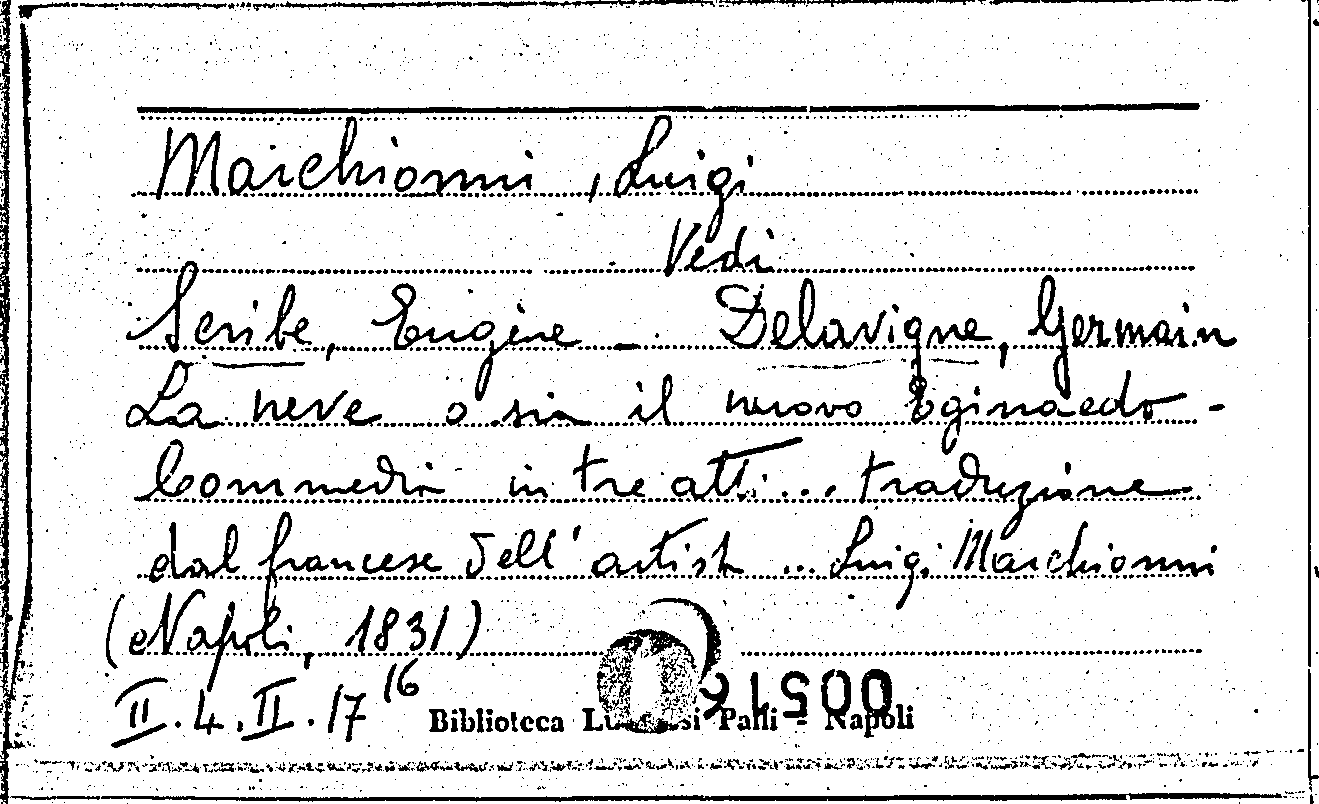 Marchionni, Luigi
Vedi
Scribe, Eugène - Delavigne, Germain
La neve o sia il nuovo Eginardo -
Commedia in tre atti... traduzione
dal francese dell'artista ... Luigi Marchionni
(Napoli, 1831)
II.4.II.17 16
Biblioteca Palli - Napoli